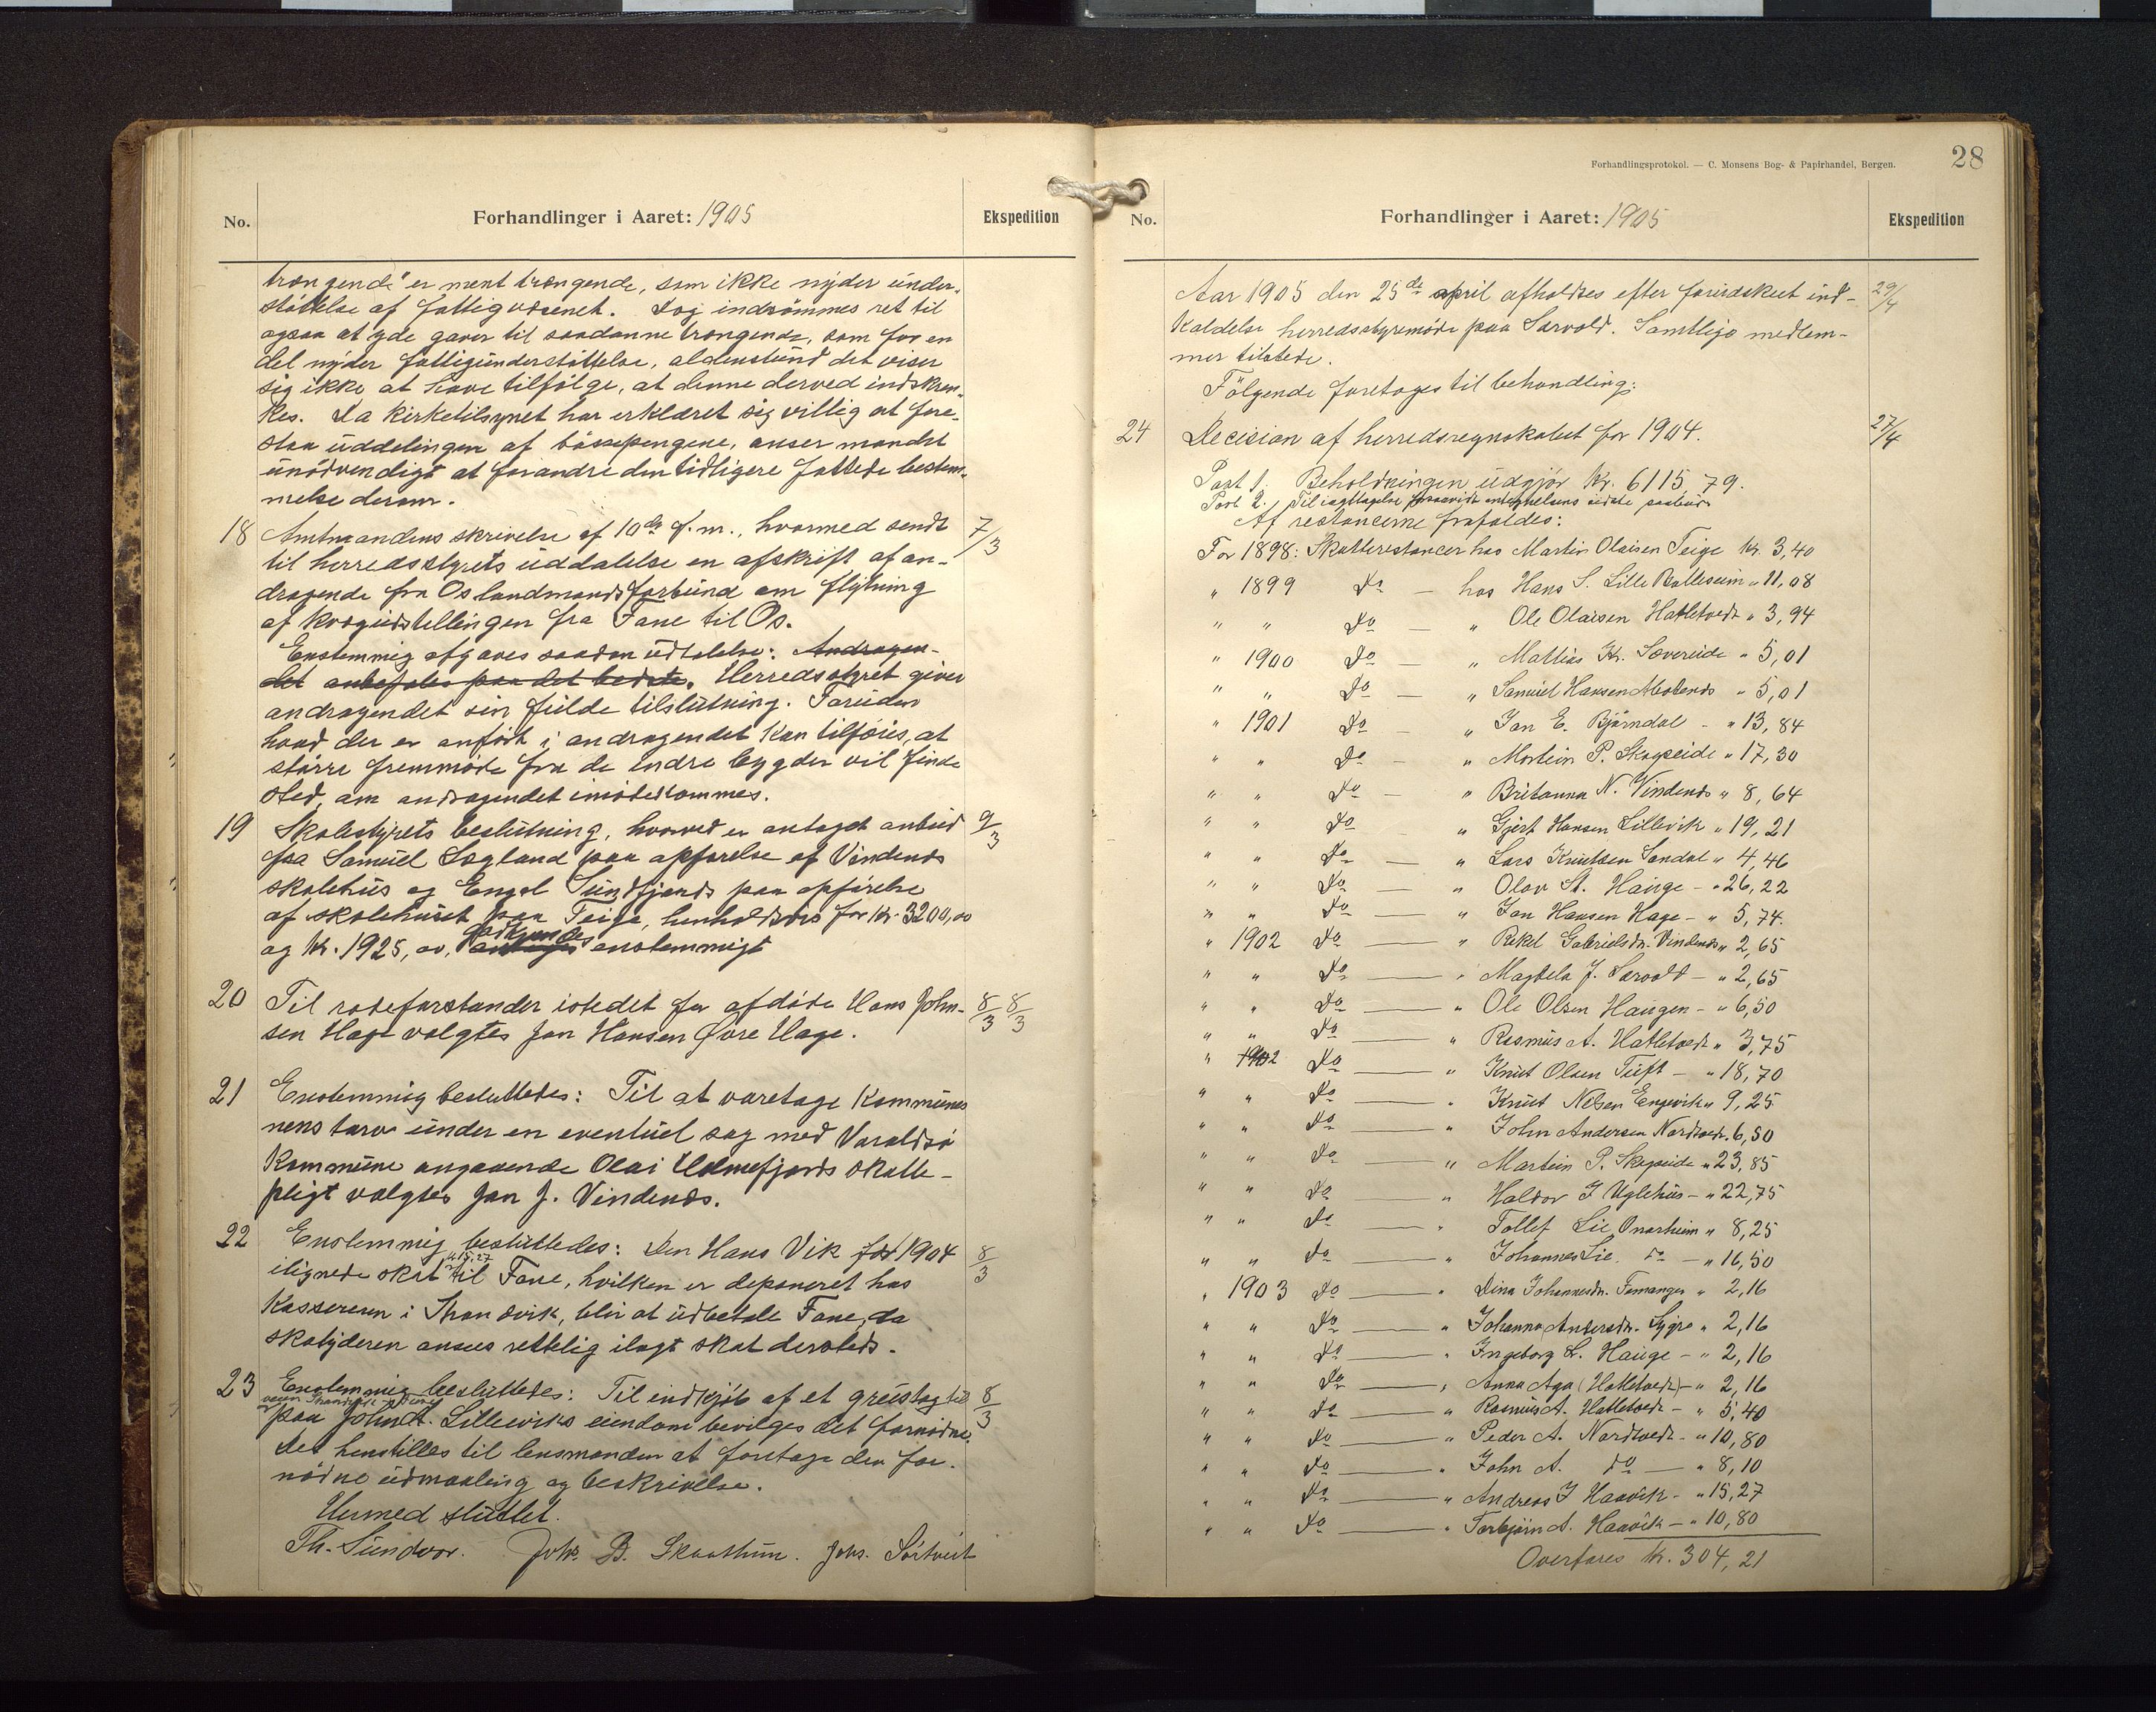 No.
Forhandlinger i Aaret: 1905
Ekspedition
trængende" er ment trængende, som ikke nyder under-
støttelse af fattigvæsenet. Dog indrømmes ret til
ogsaa at yde gaver til saadanne trængende, som for en
del nyder fattigunderstøttelse, aldenstund det viser
sig ikke at have tilfølge, at denne derved indskræn-
kes. Da kirketilsynet har erklæret sig villig at fore-
staa uddelingen af bössepengene, anser man det
unödvendigt at forandre den tidligere fattede bestem-
melse derom.
18 Amtmandens skrivelse af 10de f. m., hvormed sendt 7/3
til herredsstyrets uddalelse en afskrift af an-
dragende fra Os landmandsforbund om flytning
af kvægudstellingen fra Fane til Os.
Enstemmig afgaves saadan udtalelse: Andragen-
det anbefales paa det bedste. Herredsstyret giver
andragendet sin fulde tilslutning. Foruden
hvad der er anfört i andragendet kan tilföies, at
större fremmöde fra de indre bygder vil finde
sted, om andragendet imödekommes.
19 Skolestyrets beslutning, hvorved er antaget anbud 9/3
fra Samuel Søgland paa opførelse af Vindenes
skolehus og Engel Sundfjords paa opförelse
af skolehuset paa Teige, henholdsvis for Kr. 3200,00
og Kr. 1925,00, godkjendes enstemmigt
20 Til rodeforstander istedet for afdöde Hans John- 8/3 8/3
sen Hage valgtes Jon Hansen Øvre Hage.
21 Enstemmig besluttedes: Til at varetage kommunes
nens tarv under en eventuel sag med Varaldsö
kommune angaaende Olai Holmefjords skatte-
pligt valgtes Jon J. Vindenes.
22 Enstemmig besluttedes: Den Hans Vik for 1904 8/3
ilignede skat 15,27 til Fane, hvilken er deponeret hos
Kassereren i Strandvik, blir at udbetale Fane, da
skatyderen ansees rettelig ilagt skat dersteds.
23 Enstemmig besluttedes: Til indkjöb af et grustag til 8/3
veien Strandvik
paa John A. Lilleviks eiendom bevilges det fornödne.
Det henstilles til lensmanden at foretage den for-
nödne udmaaling og beskrivelse.
Hermed sluttet.
Th. Sundvor. Johs. B. Skaathun. Johs. Sörtveit
Forhandlingsprotokol. — C. Monsens Bog- & Papirhandel, Bergen.
28
No.
Forhandlinger i Aaret: 1905
Ekspedition
Aar 1905 den 25de april afholdtes efter forudskeet ind- 29/4
kaldelse herredsstyremöde paa Sævold. Samtlige medlem-
mer tilstede.
Fölgende foretoges til behandling:
24 Decision af herredsregnskabet for 1904. 27/4
Post 1. Beholdningen udgjør Kr. 6115,79.
Post 2. Til iagttagelse forsaavidt antegnelsens sidste
Af restancerne frafaldes:
For 1898: Skatterestancer hos Martin Olaisen Teige Kr. 3,40
" 1899 Do — hos Hans S. Lille Balleseim " 11,08
" " Do — " Ole Olaisen Hatletvedt " 3,94
" 1900 Do — " Mattias Kr. Sævereide " 5,01
" " Do — " Samuel Hansen " 5,01
" 1901 Do — " Jon E. Björndal - " 13,84
" " Do — " Mortein P. Skogseide " 17,30
" " Do — " Britanna N. Vindenes " 8,64
" " Do — " Gjert Hansen Lillevik " 19,21
" " Do — " Lars Knutsen Sandal " 4,46
" " Do — " Olav St. Hauge - " 26,22
" " Do — " Jon Hansen Hage - " 5,74.
" 1902 Do — " Rikel Gabrielsdr. Vindenes " 2,65
" " Do — " Magdela J. Særvold - " 2,65
" " Do — " Ole Olsen Haugen - " 6,50
" " Do — " Rasmus A. Hatletvedt " 3,75
" 1902 Do — " Knut Olsen Tuft - " 18,70
" " Do — " Knut Nelsen Engevik " 9,25
" " Do — " John Andersen Nordtvedt " 6,50
" " Do — " Martein P. Skogseide " 23,85
" " Do — " Haldor J Uglehus - " 22,75
" " Do — " Tollef Lie Onarheim " 8,25
" " Do — " Johannes Lie do - " 16,50
" 1903 Do — " Dina Johannesdr. Femanger " 2,16
" " Do — " Johanna Andersdr. Lygre " 2,16
" " Do — " Ingeborg L. Hauge - " 2,16
" " Do — " Anna Aga (Hatletvedt) - " 2,16
" " Do — " Rasmus A. Hatletvedt - " 5,40
" " Do — " Peder A. Nordtvedt - " 10,80
" " Do — " John A. do — " 8,10
" " Do — " Andreas J Haavik - " 15,27
" " Do — " Torbjörn A. Haavik - " 10,80
Overføres Kr. 304,21